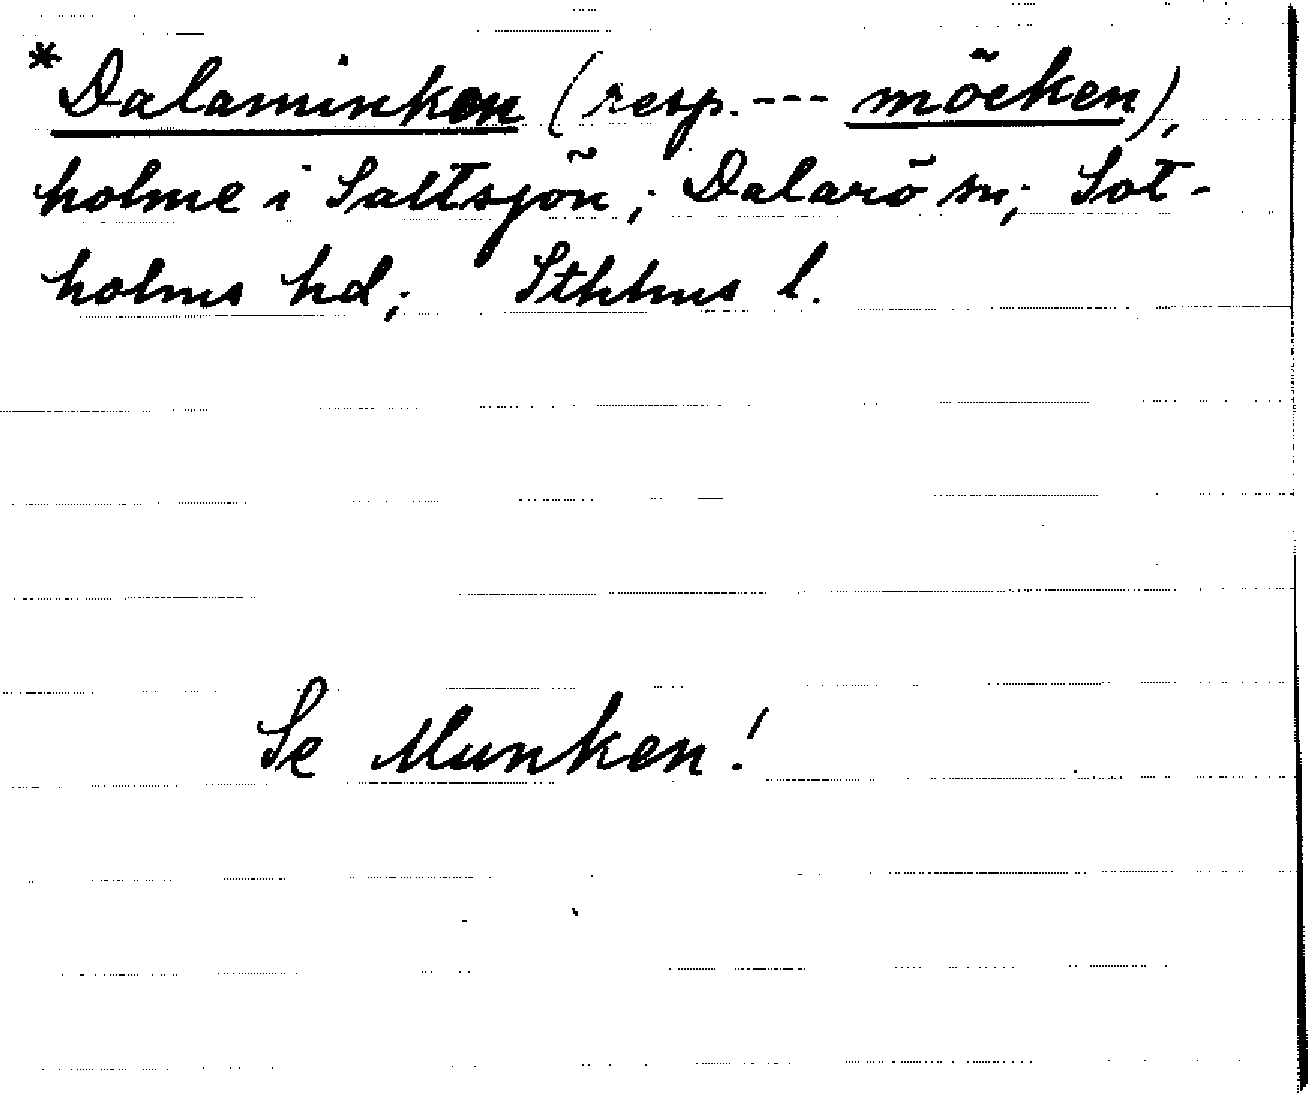 *Dalaminken (resp. --- möcken),
holme i Saltsjön; Dalarö sn; Sot-
holms hd; Sthlms l.
Se Munken!